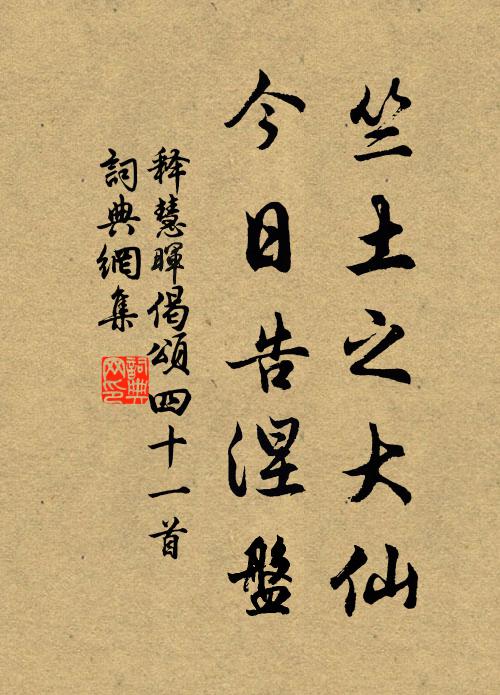 竺土之大仙
今日告涅盤
释慧暉偈頌四十一首
詞典網集
詞典
网印